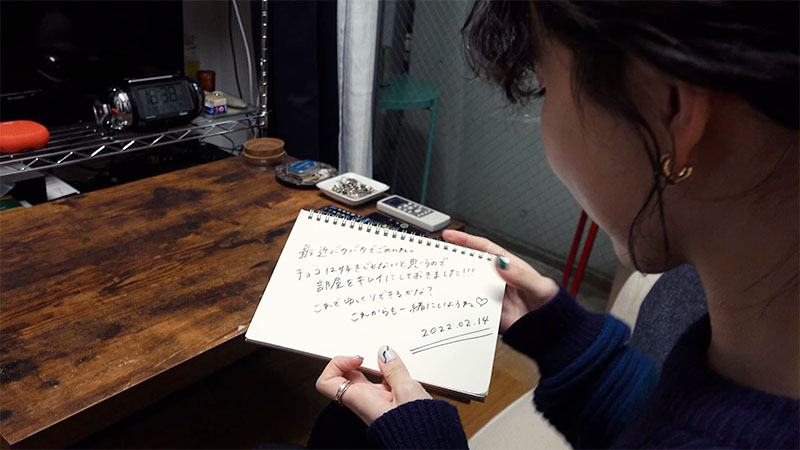 18:38
最近バタバタでごめんね。
チョコは好きじゃないと思うので
部屋をキレイにしておきました!!!
これでゆっくりできるかな?
これからも一緒にいようね♡
2022.02.14